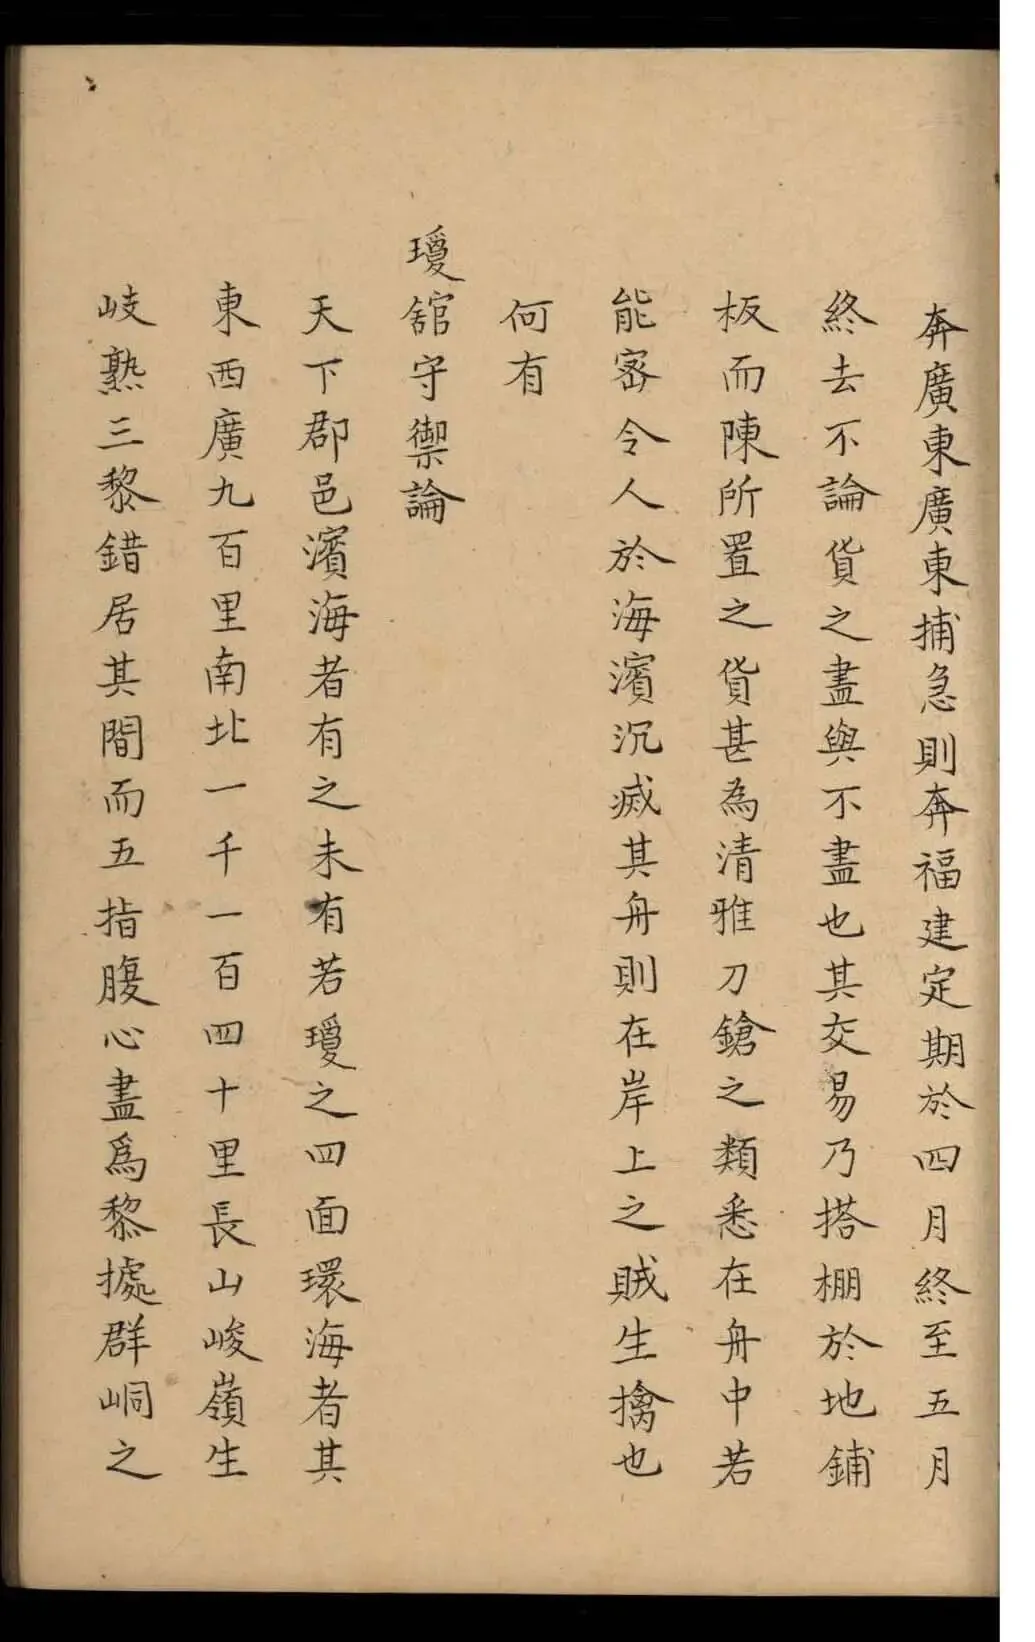 奔廣東廣東捕急則奔福建定期於四月終至五月
終去不論貨之盡與不盡也其交易乃搭棚於地鋪
板而陳所置之貨甚為清雅刀鎗之類悉在舟中若
能密令人於海濱沉滅其舟則在岸上之賊生擒也
何有
瓊館守禦論
天下郡邑濱海者有之未有若瓊之四面環海者其
東西廣九百里南北一千一百四十里長山峻嶺生
岐熟三黎錯居其間而五指腹心盡爲黎據群峒之